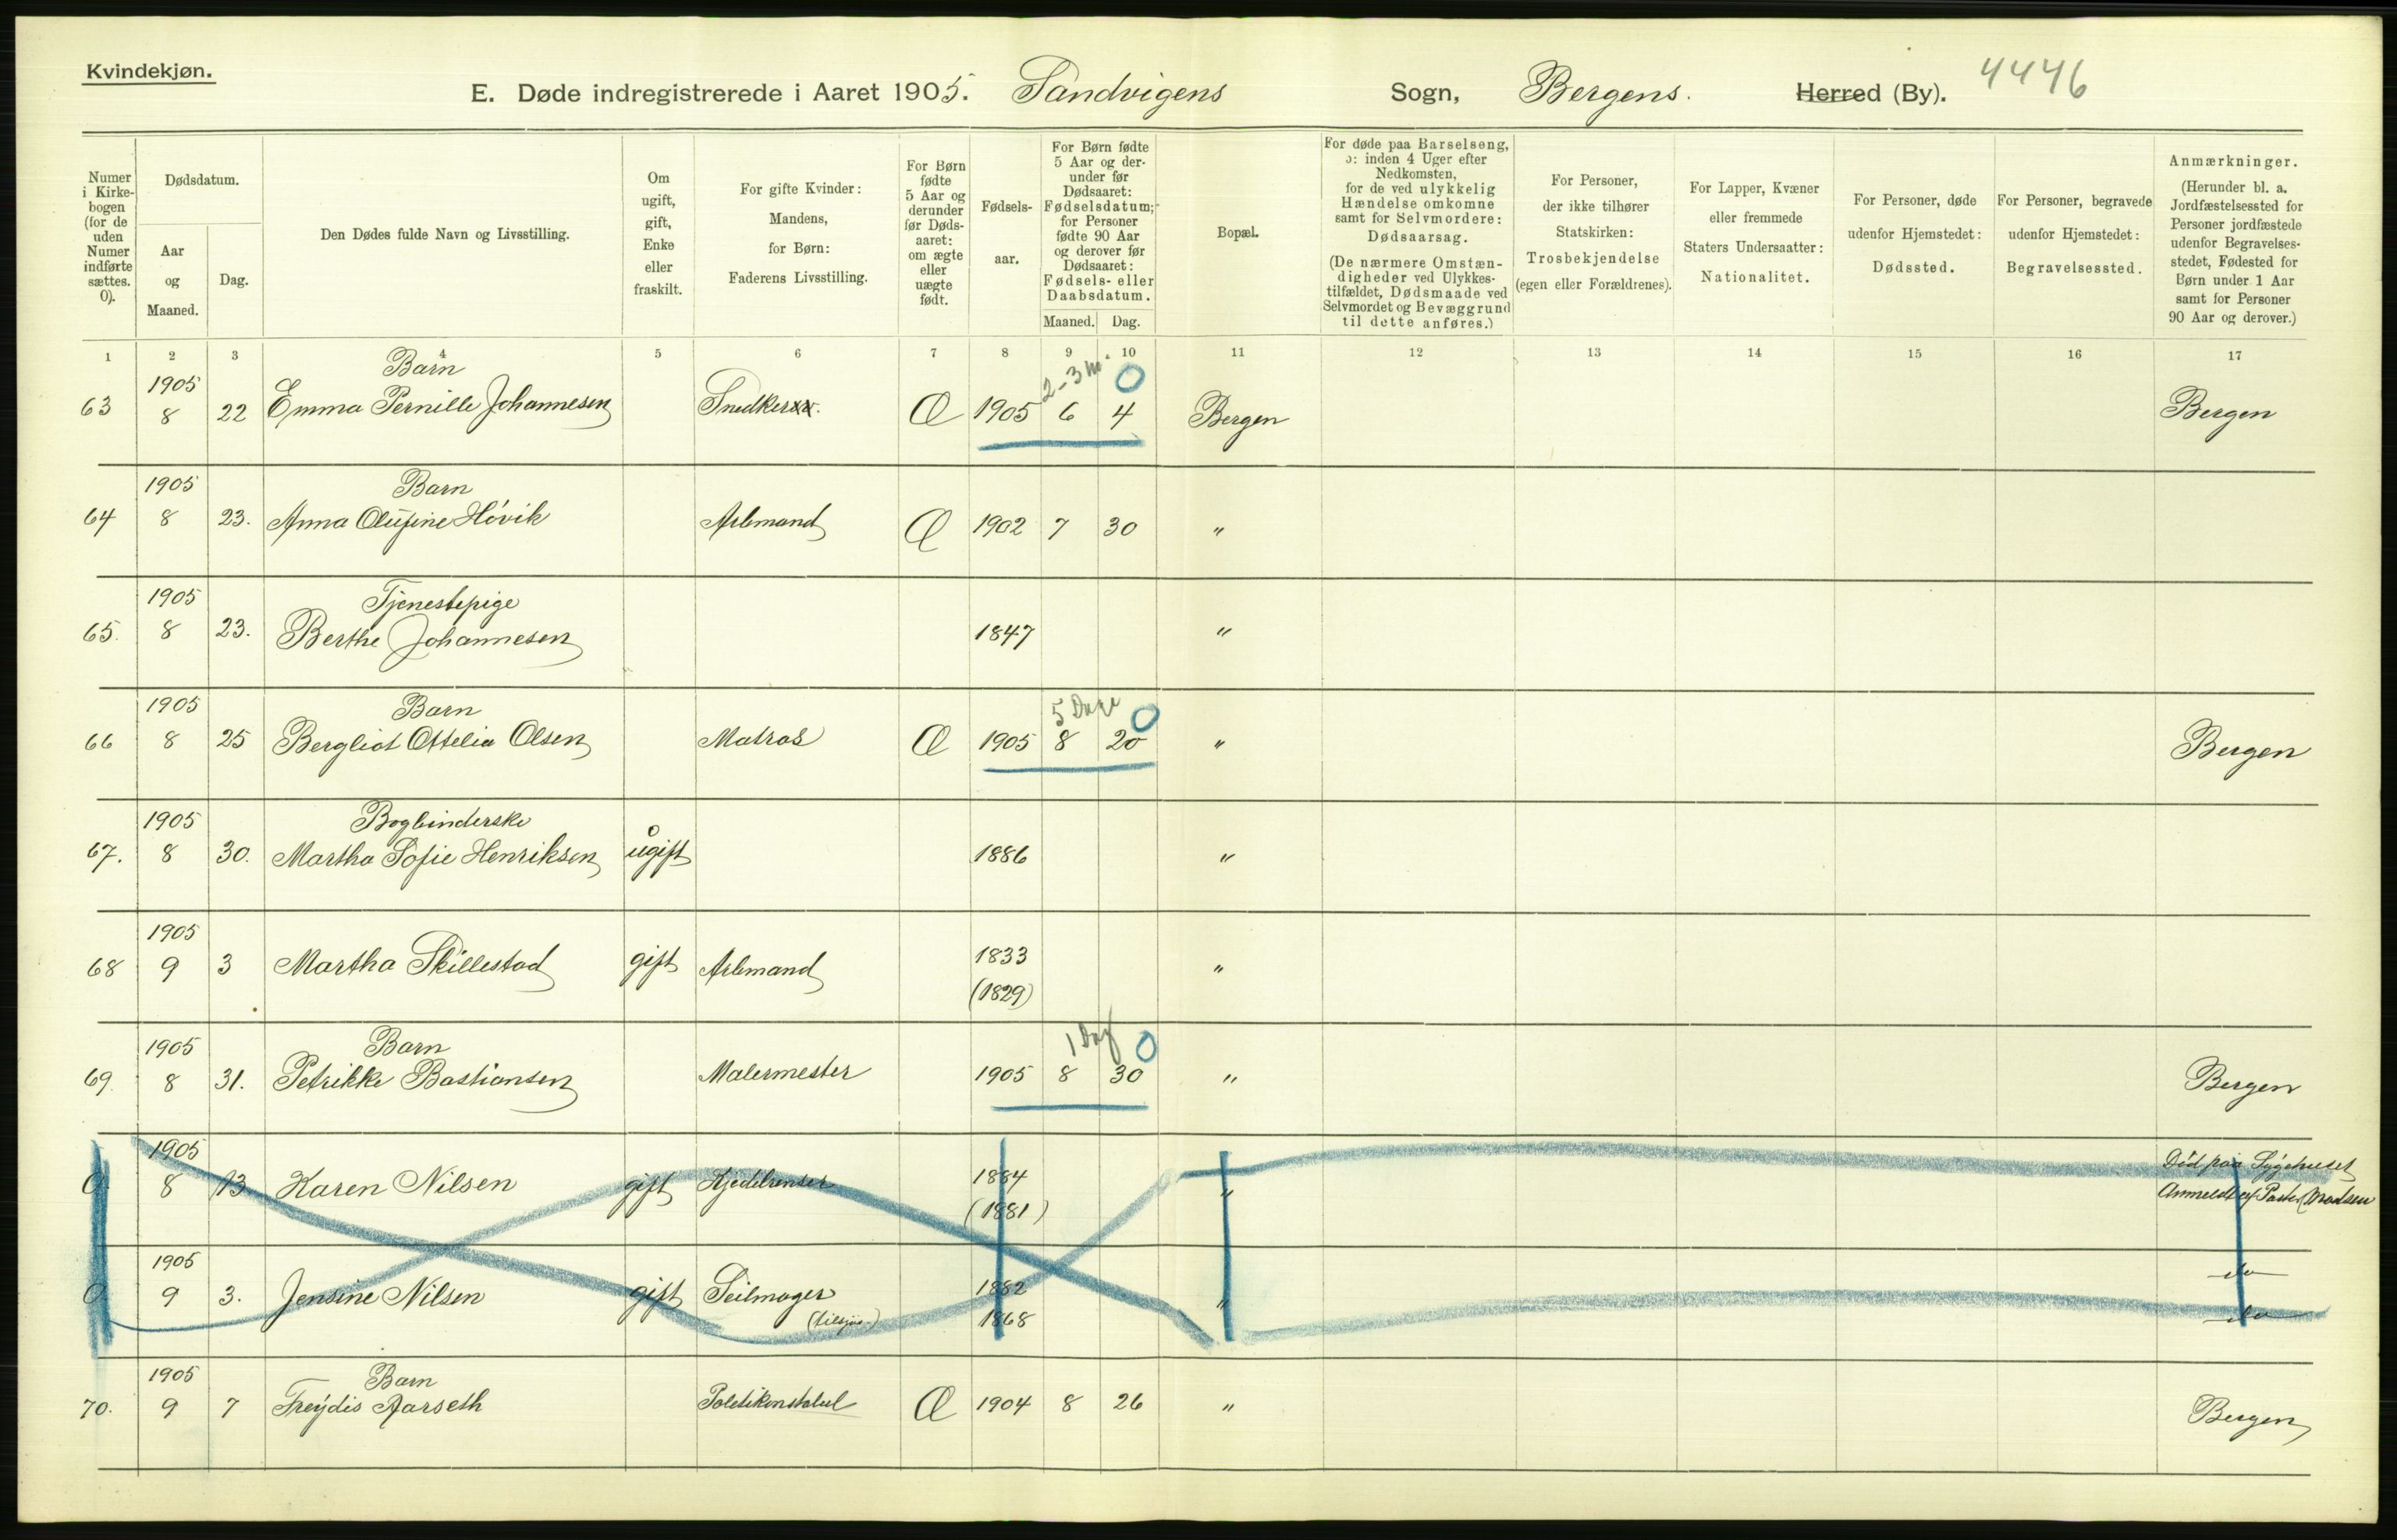 Kvindekjøn.
E. Døde indregistrerede i Aaret 1905. Sandvigens Sogn, Bergens. Herred (By). 4446
Numer i Kirke-bogen (for de uden Numer indførte sættes. 0).
Dødsdatum.
Aar og Maaned.
Dag.
Den Dødes fulde Navn og Livsstilling.
Om ugift, gift, Enke eller fraskilt.
For gifte Kvinder: Mandens, for Børn: Faderens Livsstilling.
For Børn fødte 5 Aar og derunder før Døds-aaret: om ægte eller uægte født.
Fødsels-aar.
For Børn fødte 5 Aar og der-under før Dødsaaret: Fødselsdatum; for Personer fødte 90 Aar og derover før Dødsaaret: Fødsels- eller Daabsdatum.
Maaned. Dag.
Bopæl.
For døde paa Barselseng, ɔ: inden 4 Uger efter Nedkomsten, for de ved ulykkelig Hændelse omkomne samt for Selvmordere: Dødsaarsag.
(De nærmere Omstæn-digheder ved Ulykkes-tilfældet, Dødsmaade ved Selvmordet og Bevæggrund til dette anføres.)
For Personer, der ikke tilhører Statskirken: Trosbekjendelse (egen eller Forældrenes).
For Lapper, Kvæner eller fremmede Staters Undersaatter: Nationalitet.
For Personer, døde udenfor Hjemstedet: Dødssted.
For Personer, begravede udenfor Hjemstedet: Begravelsessted.
Anmærkninger.
(Herunder bl. a. Jordfæstelsessted for Personer jordfæstede udenfor Begravelses-stedet, Fødested for Børn under 1 Aar samt for Personer 90 Aar og derover.)
1 2 3 4 5 6 7 8 9 10 11 12 13 14 15 16 17
1905 Barn 2-3 m. 0
63 8 22 Emma Pernille Johannesen Snedker Æ 1905 6 4 Bergen Bergen
1905 Barn
64 8 23. Anna Olufine Hövik Arbmand Æ 1902 7 30 "
1905 Tjenestepige
65. 8 23. Berthe Johannesen 1847 "
1905 Barn 5 Dage 0
66 8 25 Bergliot Ottelia Olsen Matros Æ 1905 8 20 " Bergen
1905 Bogbinderske
67. 8 30. Martha Sofie Henriksen ugift 1886 "
1905
68 9 3 Martha Skillestad gift Arbmand 1833 "
(1829)
1905 Barn 1 Dag 0
69. 8 31. Petrikke Bastiansen Malermester 1905 8 30 " Bergen
1905 Död paa Sygehuset
0 8 13 Karen Nilsen gift Kjedelrenser 1884 " Anmeldt af Pastor Madsen
(1881)
1905 do
0. 9 3. Jensine Nilsen gift Seilmager 1882 "
1868 do
1905 Barn
70. 9 7 Freÿdis Aarseth Politikonstabel Æ 1904 8 26 " Bergen